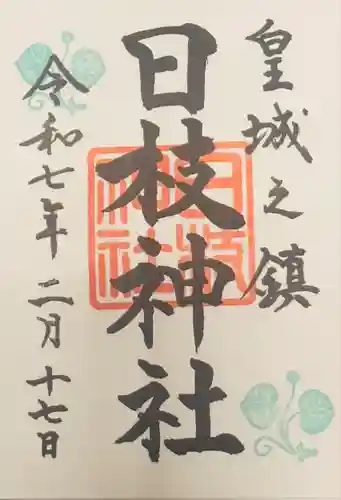 皇城之鎮
日枝神社
日枝神社
令和七年二月十七日